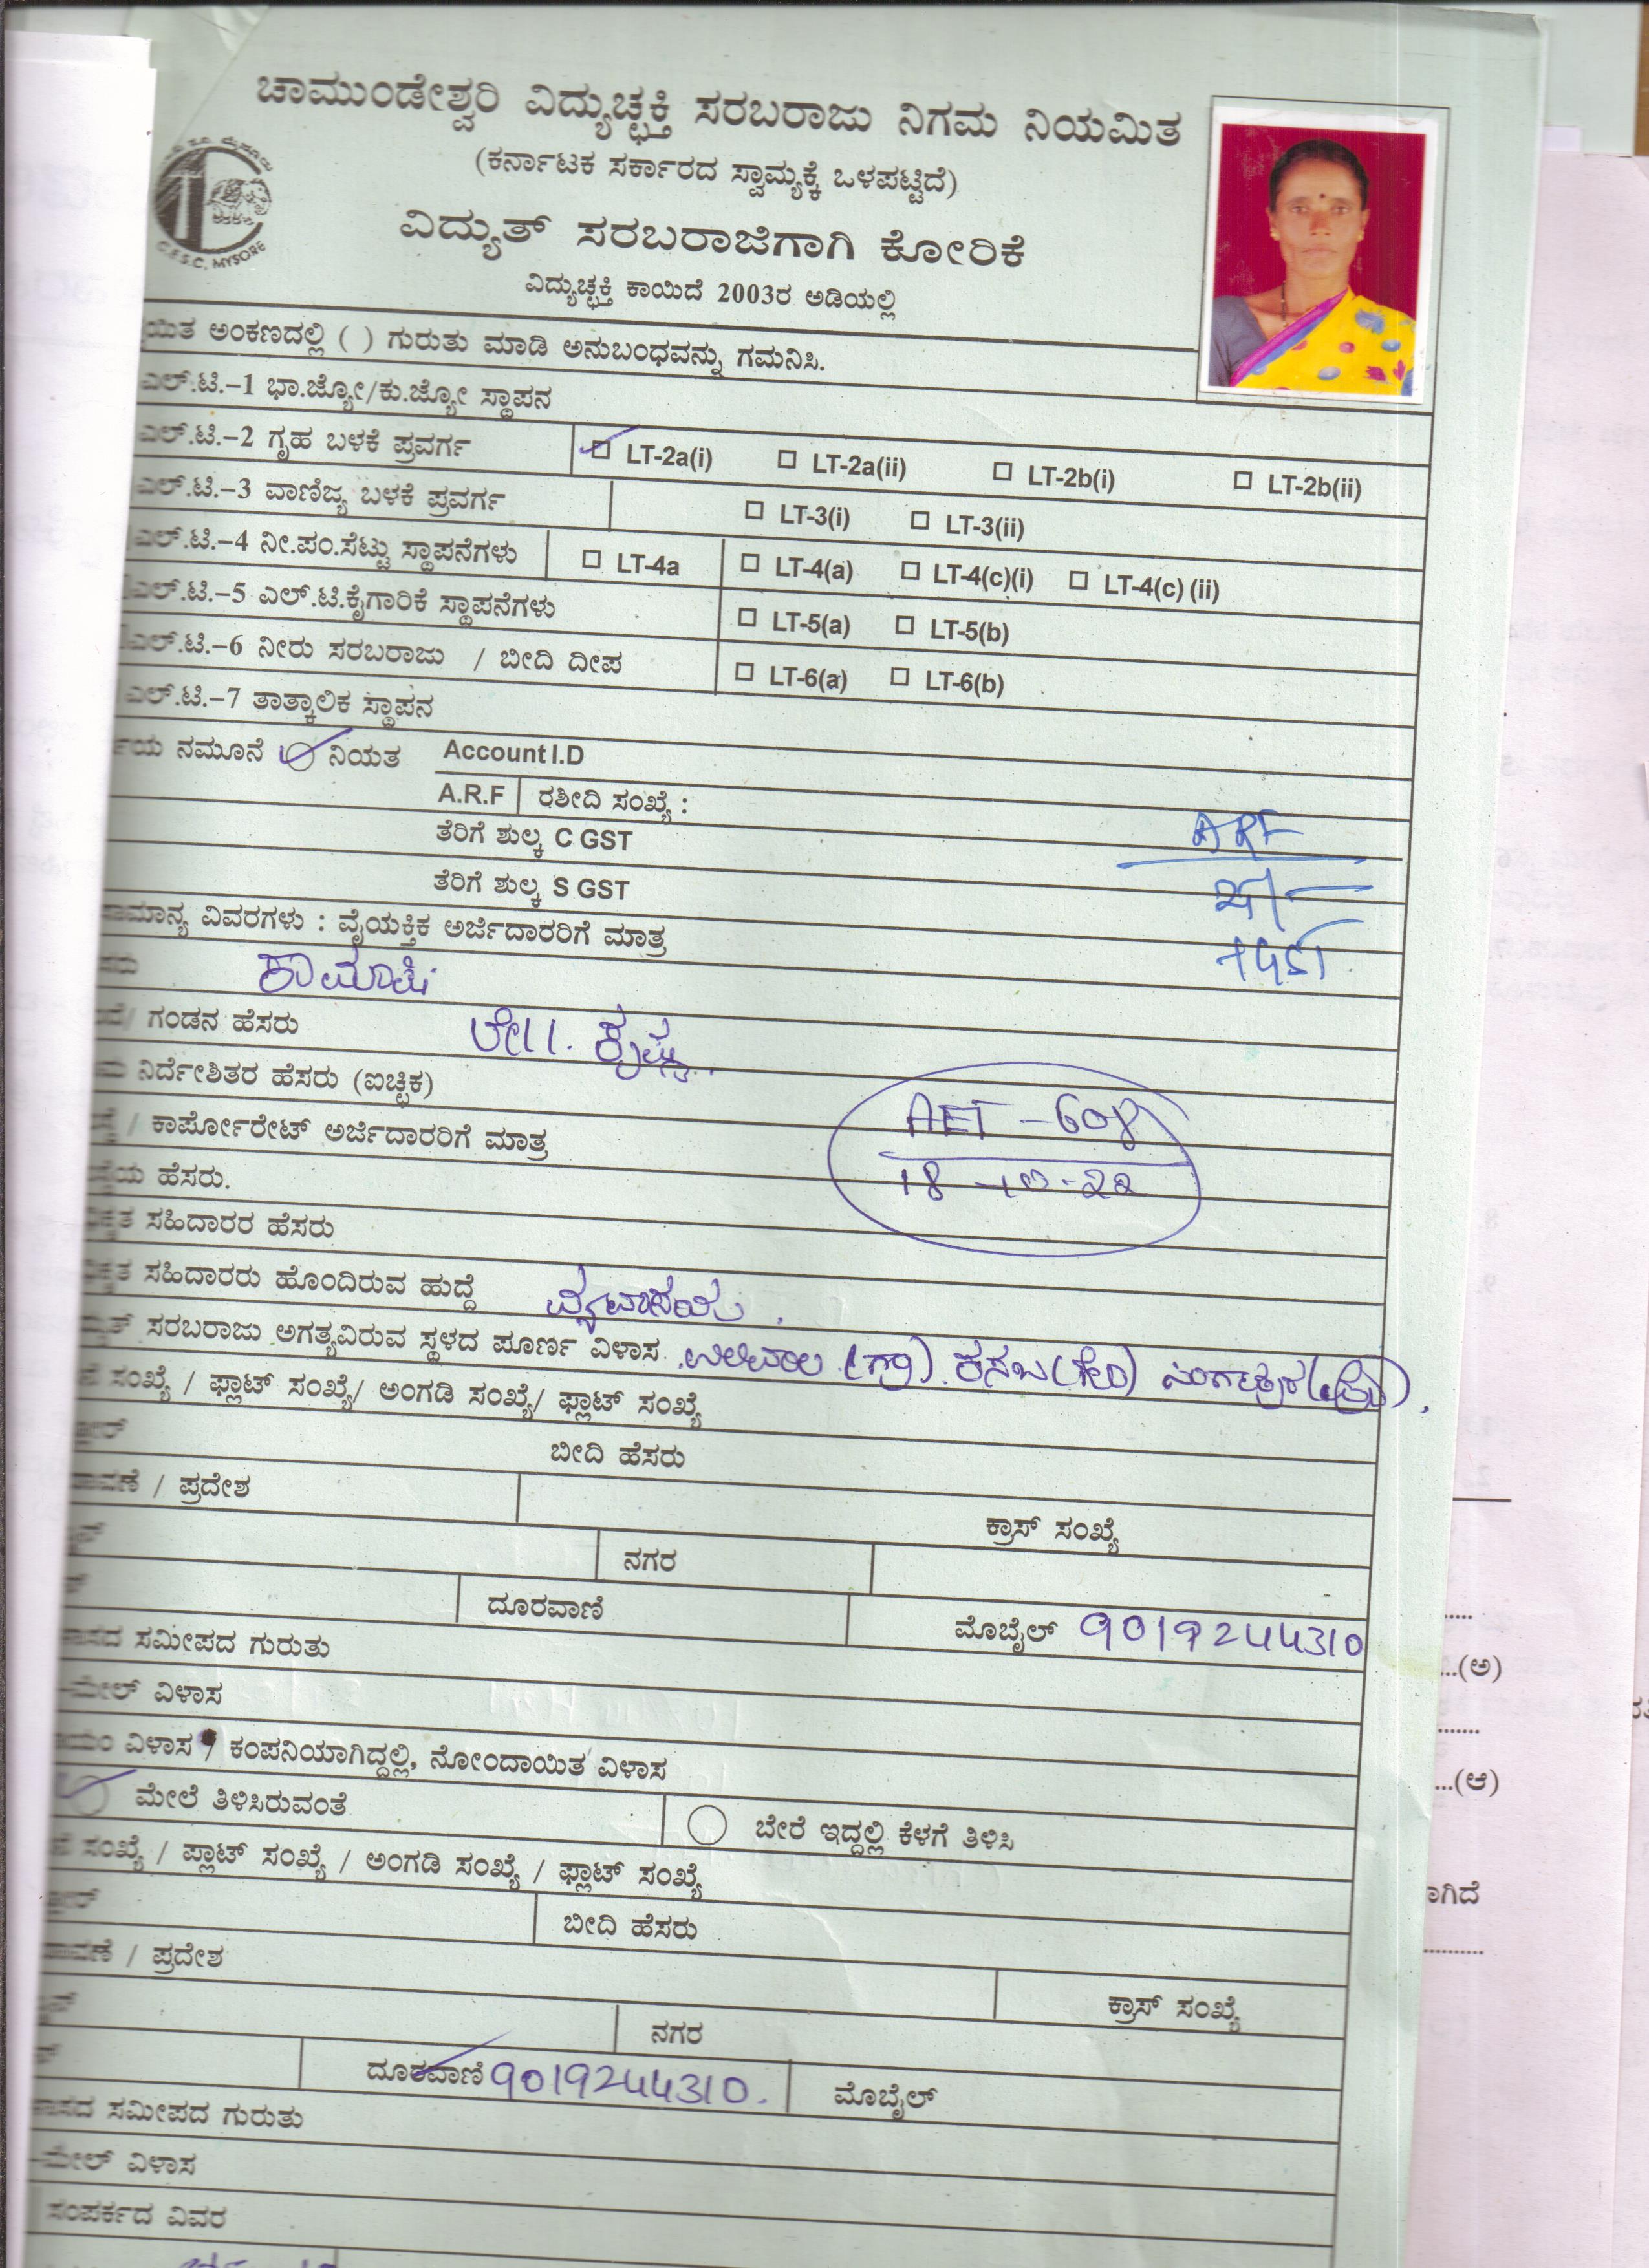 ಚಾಮುಂಡೇಶ್ವರಿ ವಿದ್ಯುಚ್ಛಕ್ತಿ ಸರಬರಾಜು ನಿಗಮ ನಿಯಮಿತ
(ಕರ್ನಾಟಕ ಸರ್ಕಾರದ ಸ್ವಾಮ್ಯಕ್ಕೆ ಒಳಪಟ್ಟಿದೆ)
C.E.S.C. MYSORE
ವಿದ್ಯುತ್ ಸರಬರಾಜಿಗಾಗಿ ಕೋರಿಕೆ
ವಿದ್ಯುಚ್ಛಕ್ತಿ ಕಾಯಿದೆ 2003ರ ಅಡಿಯಲ್ಲಿ
ಅಂಕಣದಲ್ಲಿ ( ) ಗುರುತು ಮಾಡಿ ಅನುಬಂಧವನ್ನು ಗಮನಿಸಿ.
ಎಲ್.ಟಿ.-1 ಭಾ.ಜ್ಯೋ/ಕು.ಜ್ಯೋ ಸ್ಥಾಪನ
ಎಲ್.ಟಿ.-2 ಗೃಹ ಬಳಕೆ ಪ್ರವರ್ಗ LT-2a(i) LT-2a(ii) LT-2b(i) LT-2b(ii)
ಎಲ್.ಟಿ.-3 ವಾಣಿಜ್ಯ ಬಳಕೆ ಪ್ರವರ್ಗ LT-3(i) LT-3(ii)
ಎಲ್.ಟಿ.-4 ನೀ.ಪಂ.ಸೆಟ್ಟು ಸ್ಥಾಪನೆಗಳು LT-4a LT-4(a) LT-4(c)(i) LT-4(c) (ii)
ಎಲ್.ಟಿ.-5 ಎಲ್.ಟಿ.ಕೈಗಾರಿಕೆ ಸ್ಥಾಪನೆಗಳು LT-5(a) LT-5(b)
ಎಲ್.ಟಿ.-6 ನೀರು ಸರಬರಾಜು / ಬೀದಿ ದೀಪ LT-6(a) LT-6(b)
ಎಲ್.ಟಿ.-7 ತಾತ್ಕಾಲಿಕ ಸ್ಥಾಪನ
ನಮೂನೆ ನಿಯತ Account I.D
A.R.F ರಶೀದಿ ಸಂಖ್ಯೆ :
ARF
ತೆರಿಗೆ ಶುಲ್ಕ C GST
ತೆರಿಗೆ ಶುಲ್ಕ S GST
+GST
ಸಾಮಾನ್ಯ ವಿವರಗಳು : ವೈಯಕ್ತಿಕ ಅರ್ಜಿದಾರರಿಗೆ ಮಾತ್ರ
ಗಂಡನ ಹೆಸರು ಲೇ|| ಕೃಷ್ಣ
ನಿರ್ದೇಶಿತರ ಹೆಸರು (ಐಚ್ಛಿಕ)
/ ಕಾರ್ಪೋರೇಟ್ ಅರ್ಜಿದಾರರಿಗೆ ಮಾತ್ರ
AET - 608
18-10-22
ಹೆಸರು.
ಸಹಿದಾರರ ಹೆಸರು
ಸಹಿದಾರರು ಹೊಂದಿರುವ ಹುದ್ದೆ ವ್ಯವಸಾಯ
ಸರಬರಾಜು ಅಗತ್ಯವಿರುವ ಸ್ಥಳದ ಪೂರ್ಣ ವಿಳಾಸ (ಗ್ರಾ) ಕಸಬ (ಹೋ)
ಸಂಖ್ಯೆ / ಫ್ಲಾಟ್ ಸಂಖ್ಯೆ/ ಅಂಗಡಿ ಸಂಖ್ಯೆ/ ಫ್ಲಾಟ್ ಸಂಖ್ಯೆ
ಬೀದಿ ಹೆಸರು
/ ಪ್ರದೇಶ
ಕ್ರಾಸ್ ಸಂಖ್ಯೆ
ನಗರ
ದೂರವಾಣಿ ಮೊಬೈಲ್ 9019244310
ಸಮೀಪದ ಗುರುತು
-ಮೇಲ್ ವಿಳಾಸ
ವಿಳಾಸ / ಕಂಪನಿಯಾಗಿದ್ದಲ್ಲಿ, ನೋಂದಾಯಿತ ವಿಳಾಸ
ಮೇಲೆ ತಿಳಿಸಿರುವಂತೆ ಬೇರೆ ಇದ್ದಲ್ಲಿ ಕೆಳಗೆ ತಿಳಿಸಿ
ಸಂಖ್ಯೆ / ಪ್ಲಾಟ್ ಸಂಖ್ಯೆ / ಅಂಗಡಿ ಸಂಖ್ಯೆ / ಫ್ಲಾಟ್ ಸಂಖ್ಯೆ
ಬೀದಿ ಹೆಸರು
/ ಪ್ರದೇಶ
ಕ್ರಾಸ್ ಸಂಖ್ಯೆ
ನಗರ
ದೂರವಾಣಿ 9019244310. ಮೊಬೈಲ್
ಸಮೀಪದ ಗುರುತು
-ಮೇಲ್ ವಿಳಾಸ
ಸಂಪರ್ಕದ ವಿವರ
...(ಅ)
...(ಆ)